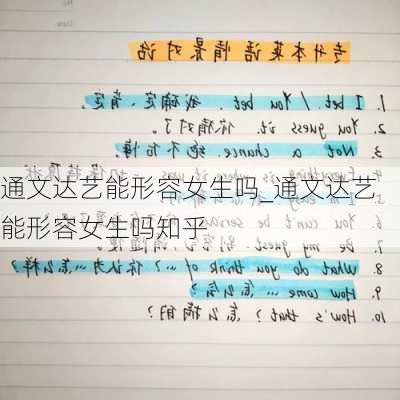 专升本英语情景对话
1. I bet. / You bet. 我确定、肯定。
2. You guess it. 你猜对了。
3. Not a chance. 绝不
通文达艺能形容女生吗_通文达艺
能形容女生吗知乎
You can't be serious.
7. Be my guest. 别客气, 请随便。
8. What do you think of ...? 你认为...怎么样?
9. How come ...? 怎么会?
10. How's that? 怎么搞的?